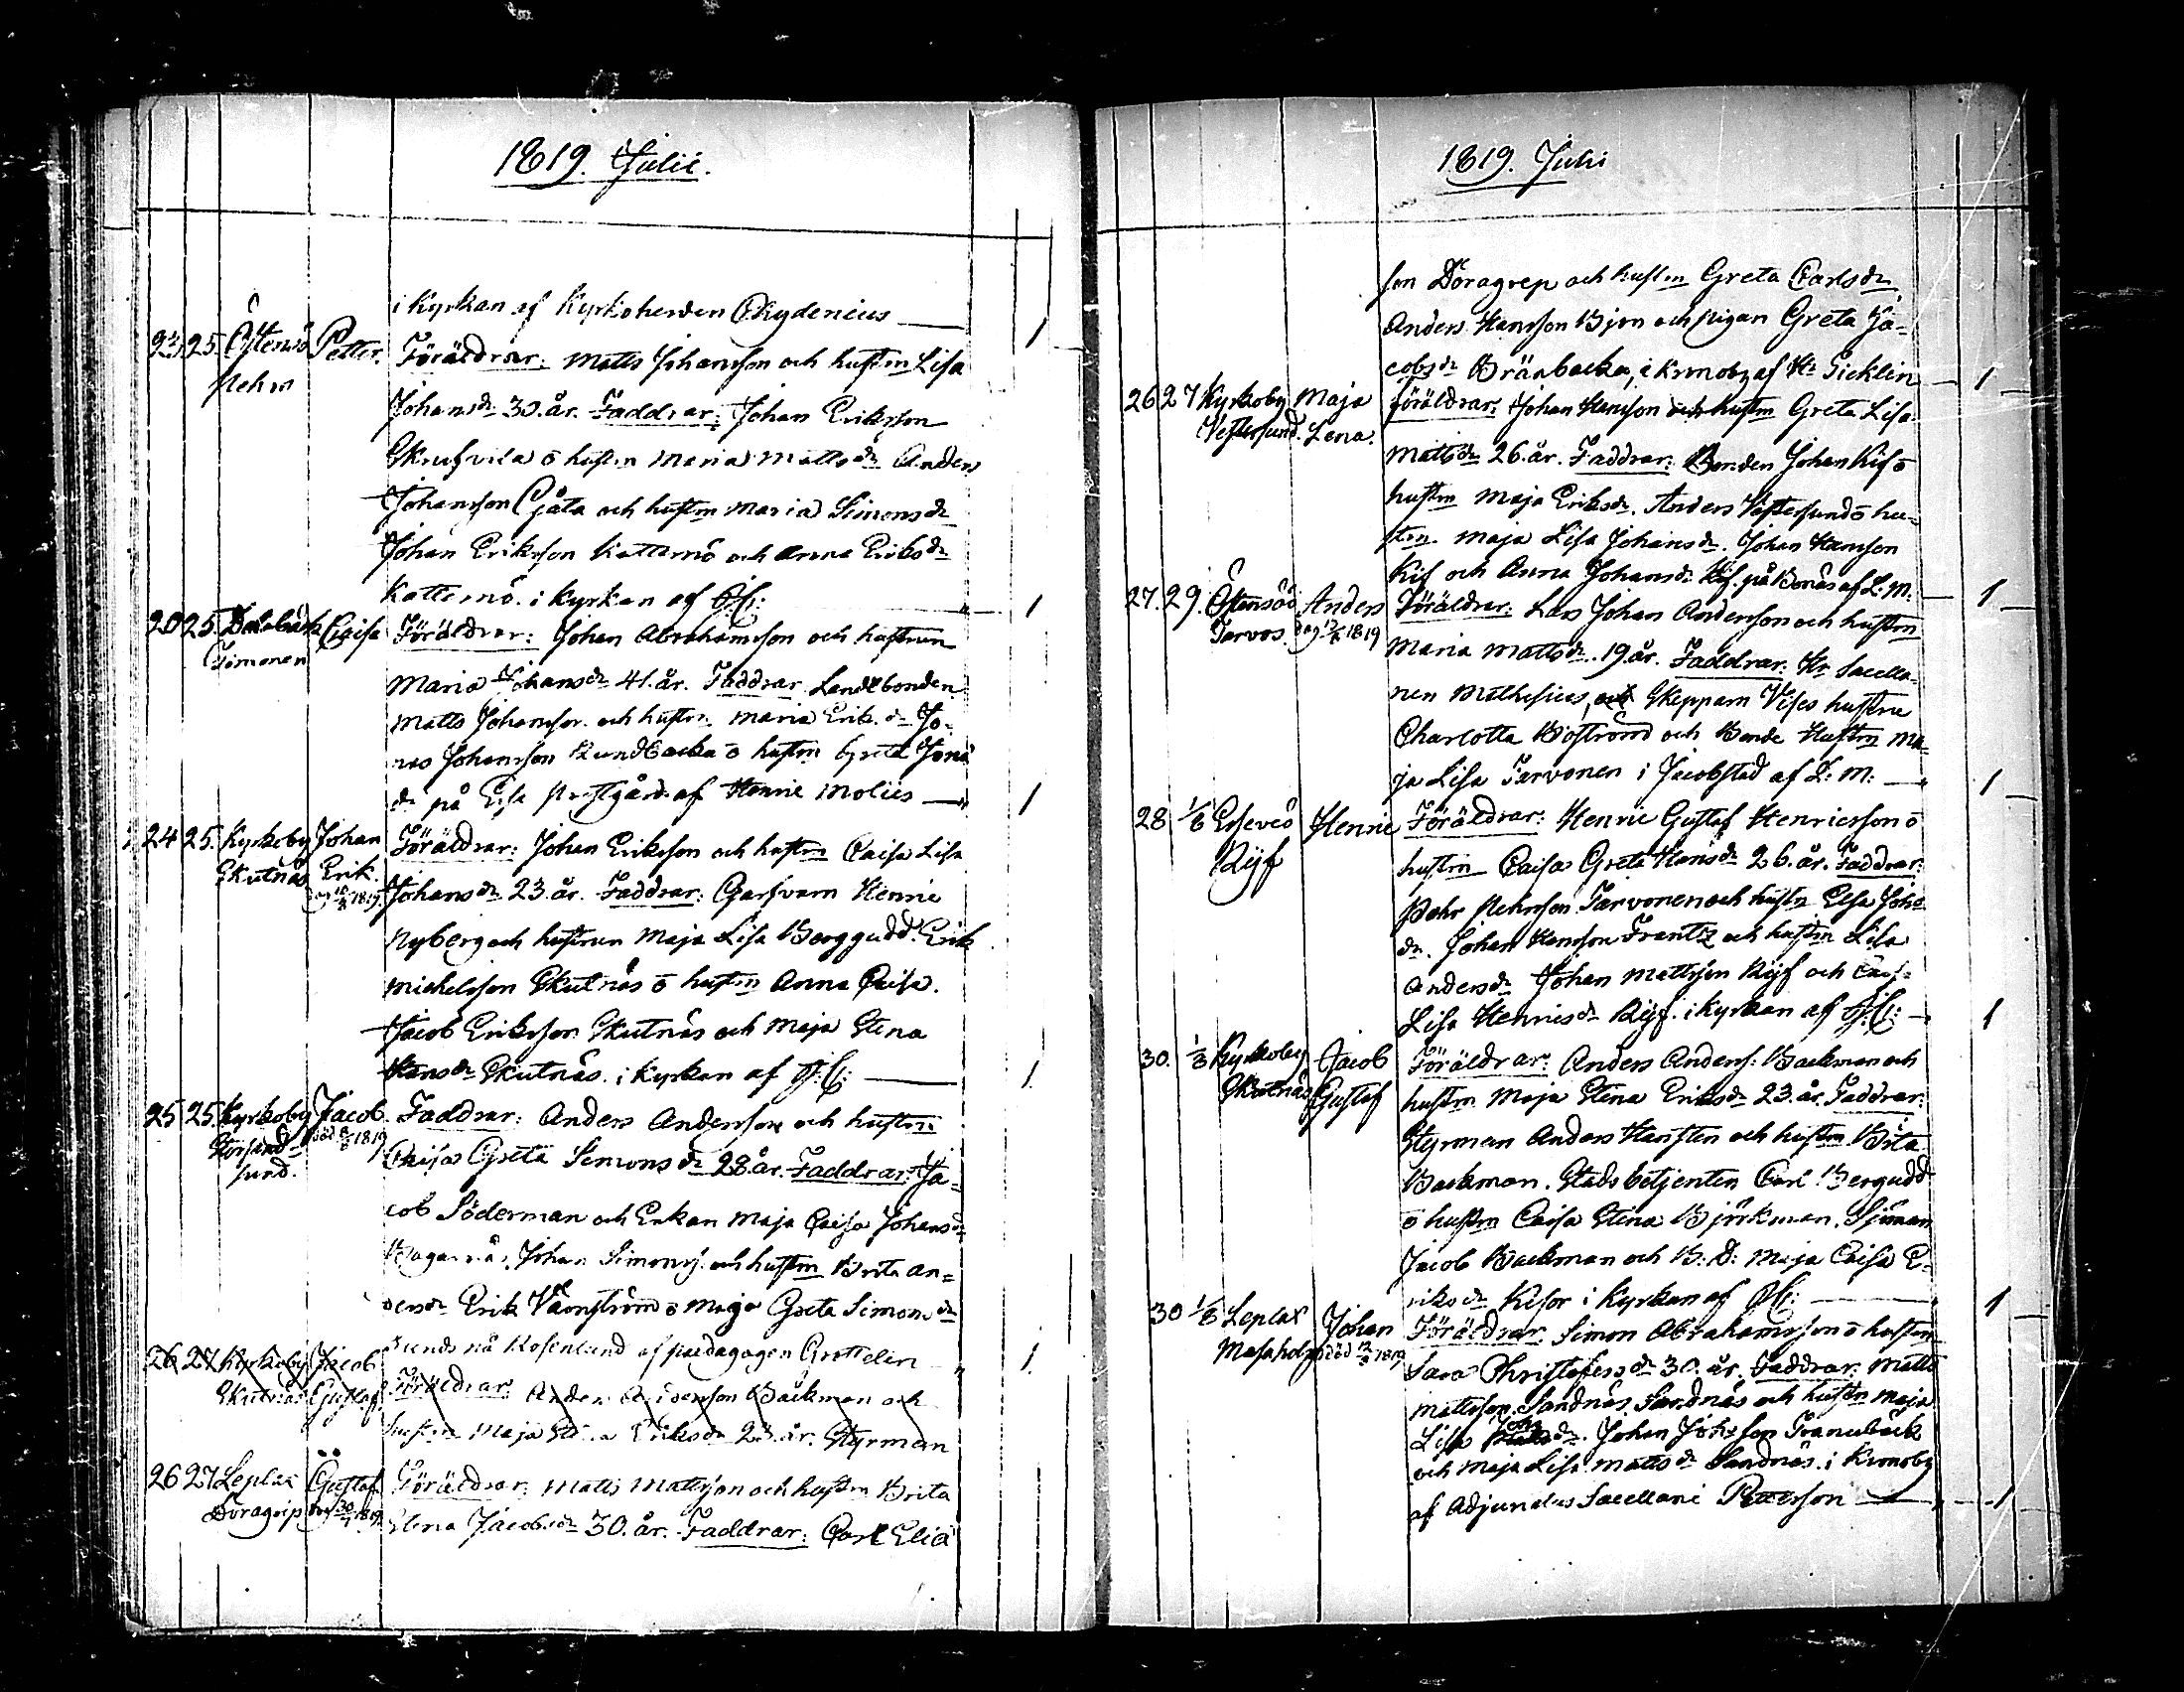 1819. Julii.
i Kyrkan af Kyrkoherden Chydenius 1
25. Österö Petter. Föräldrar: Matts Johansson och hustrn Lisa
Johansdr 30. år. Faddrar: Johan Eriksson
ō hustrn Maria Mattsdr Anders
Johansson Gåta och hustrn Maria Simonsdr
Johan Eriksson Katternö och Anna Eriksdr
Katternö. i Kyrkan af J: C: 1
20 25. Caisa Föräldrar: Johan Abrahamsson och hustrun
Simonen Maria Johansdr 41. år. Faddrar Landbonden
Matts Johansson och hustrn Maria Erik. dr Jo-
nas Johansson Sundbacka ō hustrn Greta Jona
dr på af Henric Molius 1
24 25. Kyrkoby Johan Föräldrar: Johan Eriksson och hustrn Caisa Lisa
Skutnäs Erik. Johansdr 23. år. Faddrar: Garfvarn Henric
1819. Nyberg och hustrun Maja Lisa Berggudd. Erik
Michelsson Skutnäs ō hustrn Anna Caisa.
Jacob Eriksson Skutnäs och Maja Stina
Hansdr Skutnäs. i Kyrkan af J: C: 1
25 25. Kyrkoby Jacob Faddrar: Anders Andersson och hustrn
död 1819 Caisa Greta Simonsdr 28. år. Faddrar: Ja-
sund. cob Söderman och Enkan Maja Caisa Johansdr
Johan Simons: och hustrn Brita An-
dersdr Erik ō Maja Greta Simonsdr
Rosenlund af paedagogen 1
26 27 Kyrkoby Jacob Föräldrar: Anders Andersson Backman och
Skutnäs Gustaf hustrn Maja Stina Eriksdr 23. år. Styrman
26 27 Leplax Gustaf Föräldrar: Matts Mattsson och hustrn Brita
Döragrip 1819. Stina Jacobsdr 30. år. Faddrar: Carl Elia
1819. Juli
son Döragrep och hustrn Greta Carlsdr
Anders Hansson Björn och pigan Greta Ja-
cobsdr Brännbacka, i Kronoby af Hr 1
26 27 Kyrkoby Maja föräldrar: Johan Hansson och hustrn Greta Lisa
Vestersund. Lena. Mattsdr 26. år. Faddrar: Bonden Johan Kif ō
hustrn Maja Eriksdr. Anders Vestersund ō hu-
strn. Maja Lisa Johansdr. Johan Hansson
Kif och Anna Johansdr Kif. på Bonäs af L: M: 1
27. 29. Anders Föräldrar: Lars Johan Andersson och hustrn
Tarvos. 1819 Maria Mattsdr. 19. år. Faddrar. Hr Sacella-
nen Mathesius, och Skepparn hustru
Charlotta Boström och Bonde Hustrn Ma-
ja Lisa Tarvonen i Jacobstad af L: M: 1
28 1/8 Henric Föräldrar: Henric Gustaf Henricsson ō
Rÿf hustrn Caisa Greta Hansdr 26. år. Faddrar:
Pehrsson Tarvonen och hustrn Elsa Joha
dr. Johan Hansson Frantz och hustrn Lisa
Andersdr Johan Mattsson Rÿf och Caisa
Lisa Henricsdr Rÿf. i Kyrkan af J: C: 1
30. 1/8 Kyrkoby Jacob Föräldrar: Anders Anders: Backman och
Skutnäs Gustaf hustrn Maja Stina Eriksdr 23. år. Faddrar:
Styrman Anders Hansten och hustrn Brita
Backman. Stadsbetjenten Carl Bergudd
ō hustrn Caisa Stina Björkman. Sjöman
Jacob Backman och B: D: Maja Caisa E-
riksdr Kisor i Kyrkan af J: C: 1
30 1/8 Leplax Johan Föräldrar: Simon Abrahamsson ō hustrn
död 1819 Sara Christofersdr 30. år. Faddrar: Matts
Mattsson Sandnäs Sandnäs och hustrn Maja
Lisa Johs dr. Johan Johsson
och Maja Lisa Mattsdr Sandnäs. i Kronoby
af Adjunctus Sacellani Petterson 1